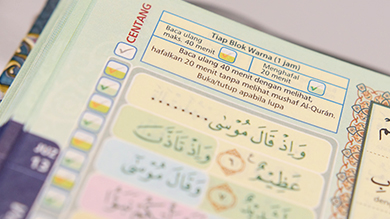 CENTANG
Tiap Blok Warna (1 jam)
Baca ulang
maks. 40 menit
Menghafal
20 menit
Baca ulang 40 menit dengan melihat,
hafalkan 20 menit tanpa melihat mushaf Al-Qurán.
Buka/tutup apabila lupa
وَاِذْ قَالَ مُوْسٰى ........
عَظِيْمٌ ٦ وَاِذْ تَاَذَّنَ
وَقَالَ مُوْسٰى
JUZ
13